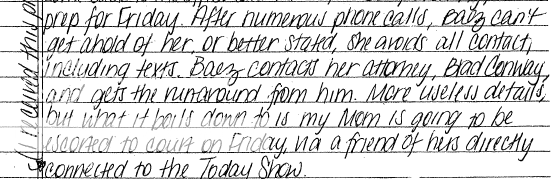 prep for Friday. After numerous phone calls, Baez can't
get ahold of her, or better stated, she avoids all contact,
including texts. Baez contacts her attorney, Brad Conway,
and gets the runaround from him. More useless details,
but what it boils down to is my Mom is going to be
escorted to court on Friday, via a friend of hers directly
connected to the Today Show.
received this on